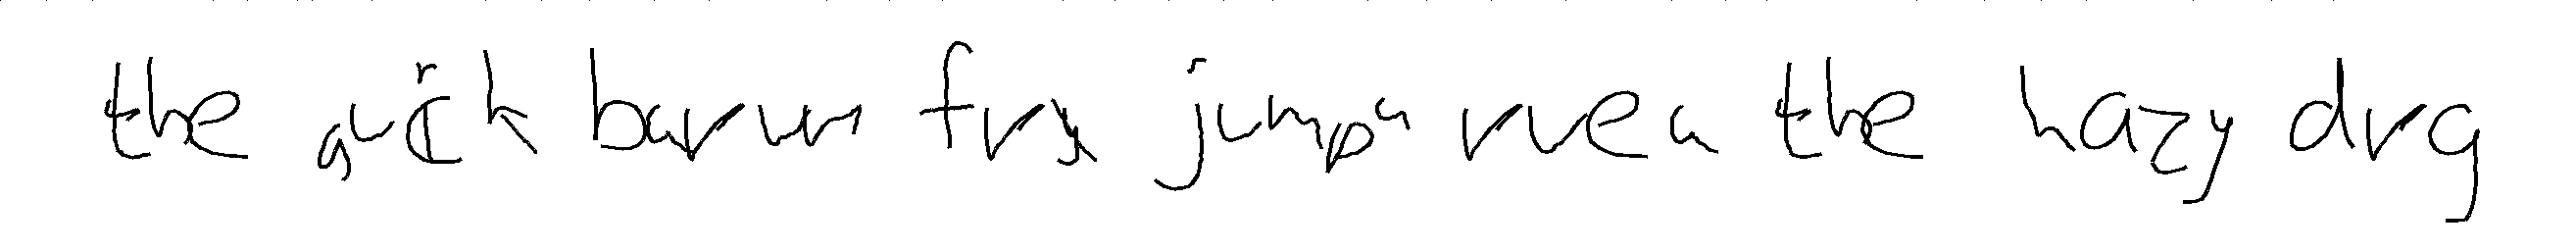 the quick barwn fvx jumpa vvea the hazy dvg